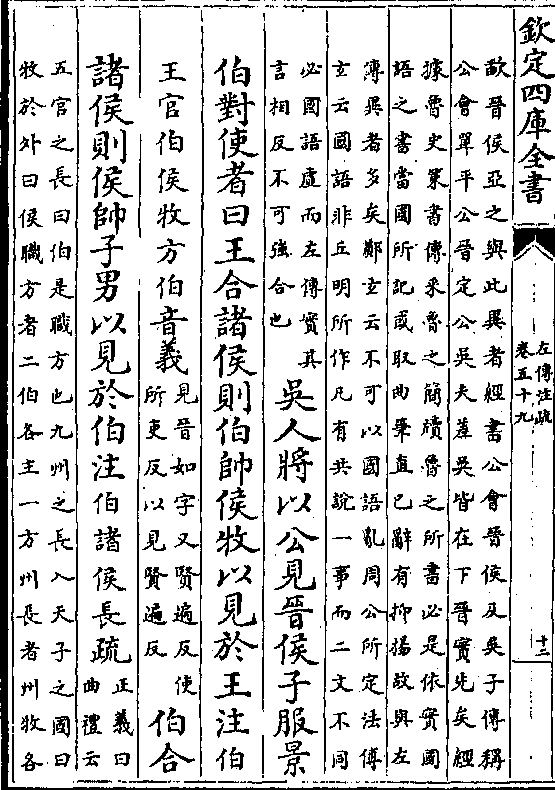 欽定四庫全書
左傳注疏
卷五十九
十二
故晉侯亞之與此異者經書公會晉侯及吳子傳稱
公會單平公晉定公吳夫差吳皆在下晉實先矣經
據魯史策書傳采魯之簡牘魯之所書必是依實國
語之書當國所記或取曲筆直己辭有抑揚故與左
傳異者多矣鄭玄云不可以國語亂周公所定法傅
玄云國語非丘明所作凡有共說一事而二文不同
必國語虛而左傳實其
言相反不可強合也
吳人將以公見晉侯子服景
伯對使者曰王合諸侯則伯帥侯牧以見於王注伯
王官伯侯牧方伯音義
見晉如字又賢遍反使
所吏反以見賢遍反
伯合
諸侯則侯帥子男以見於伯注伯諸侯長疏
正義曰
曲禮云
五官之長曰伯是職方也九州之長入天子之國曰
牧於外曰侯職方者二伯各主一方州長者州牧各